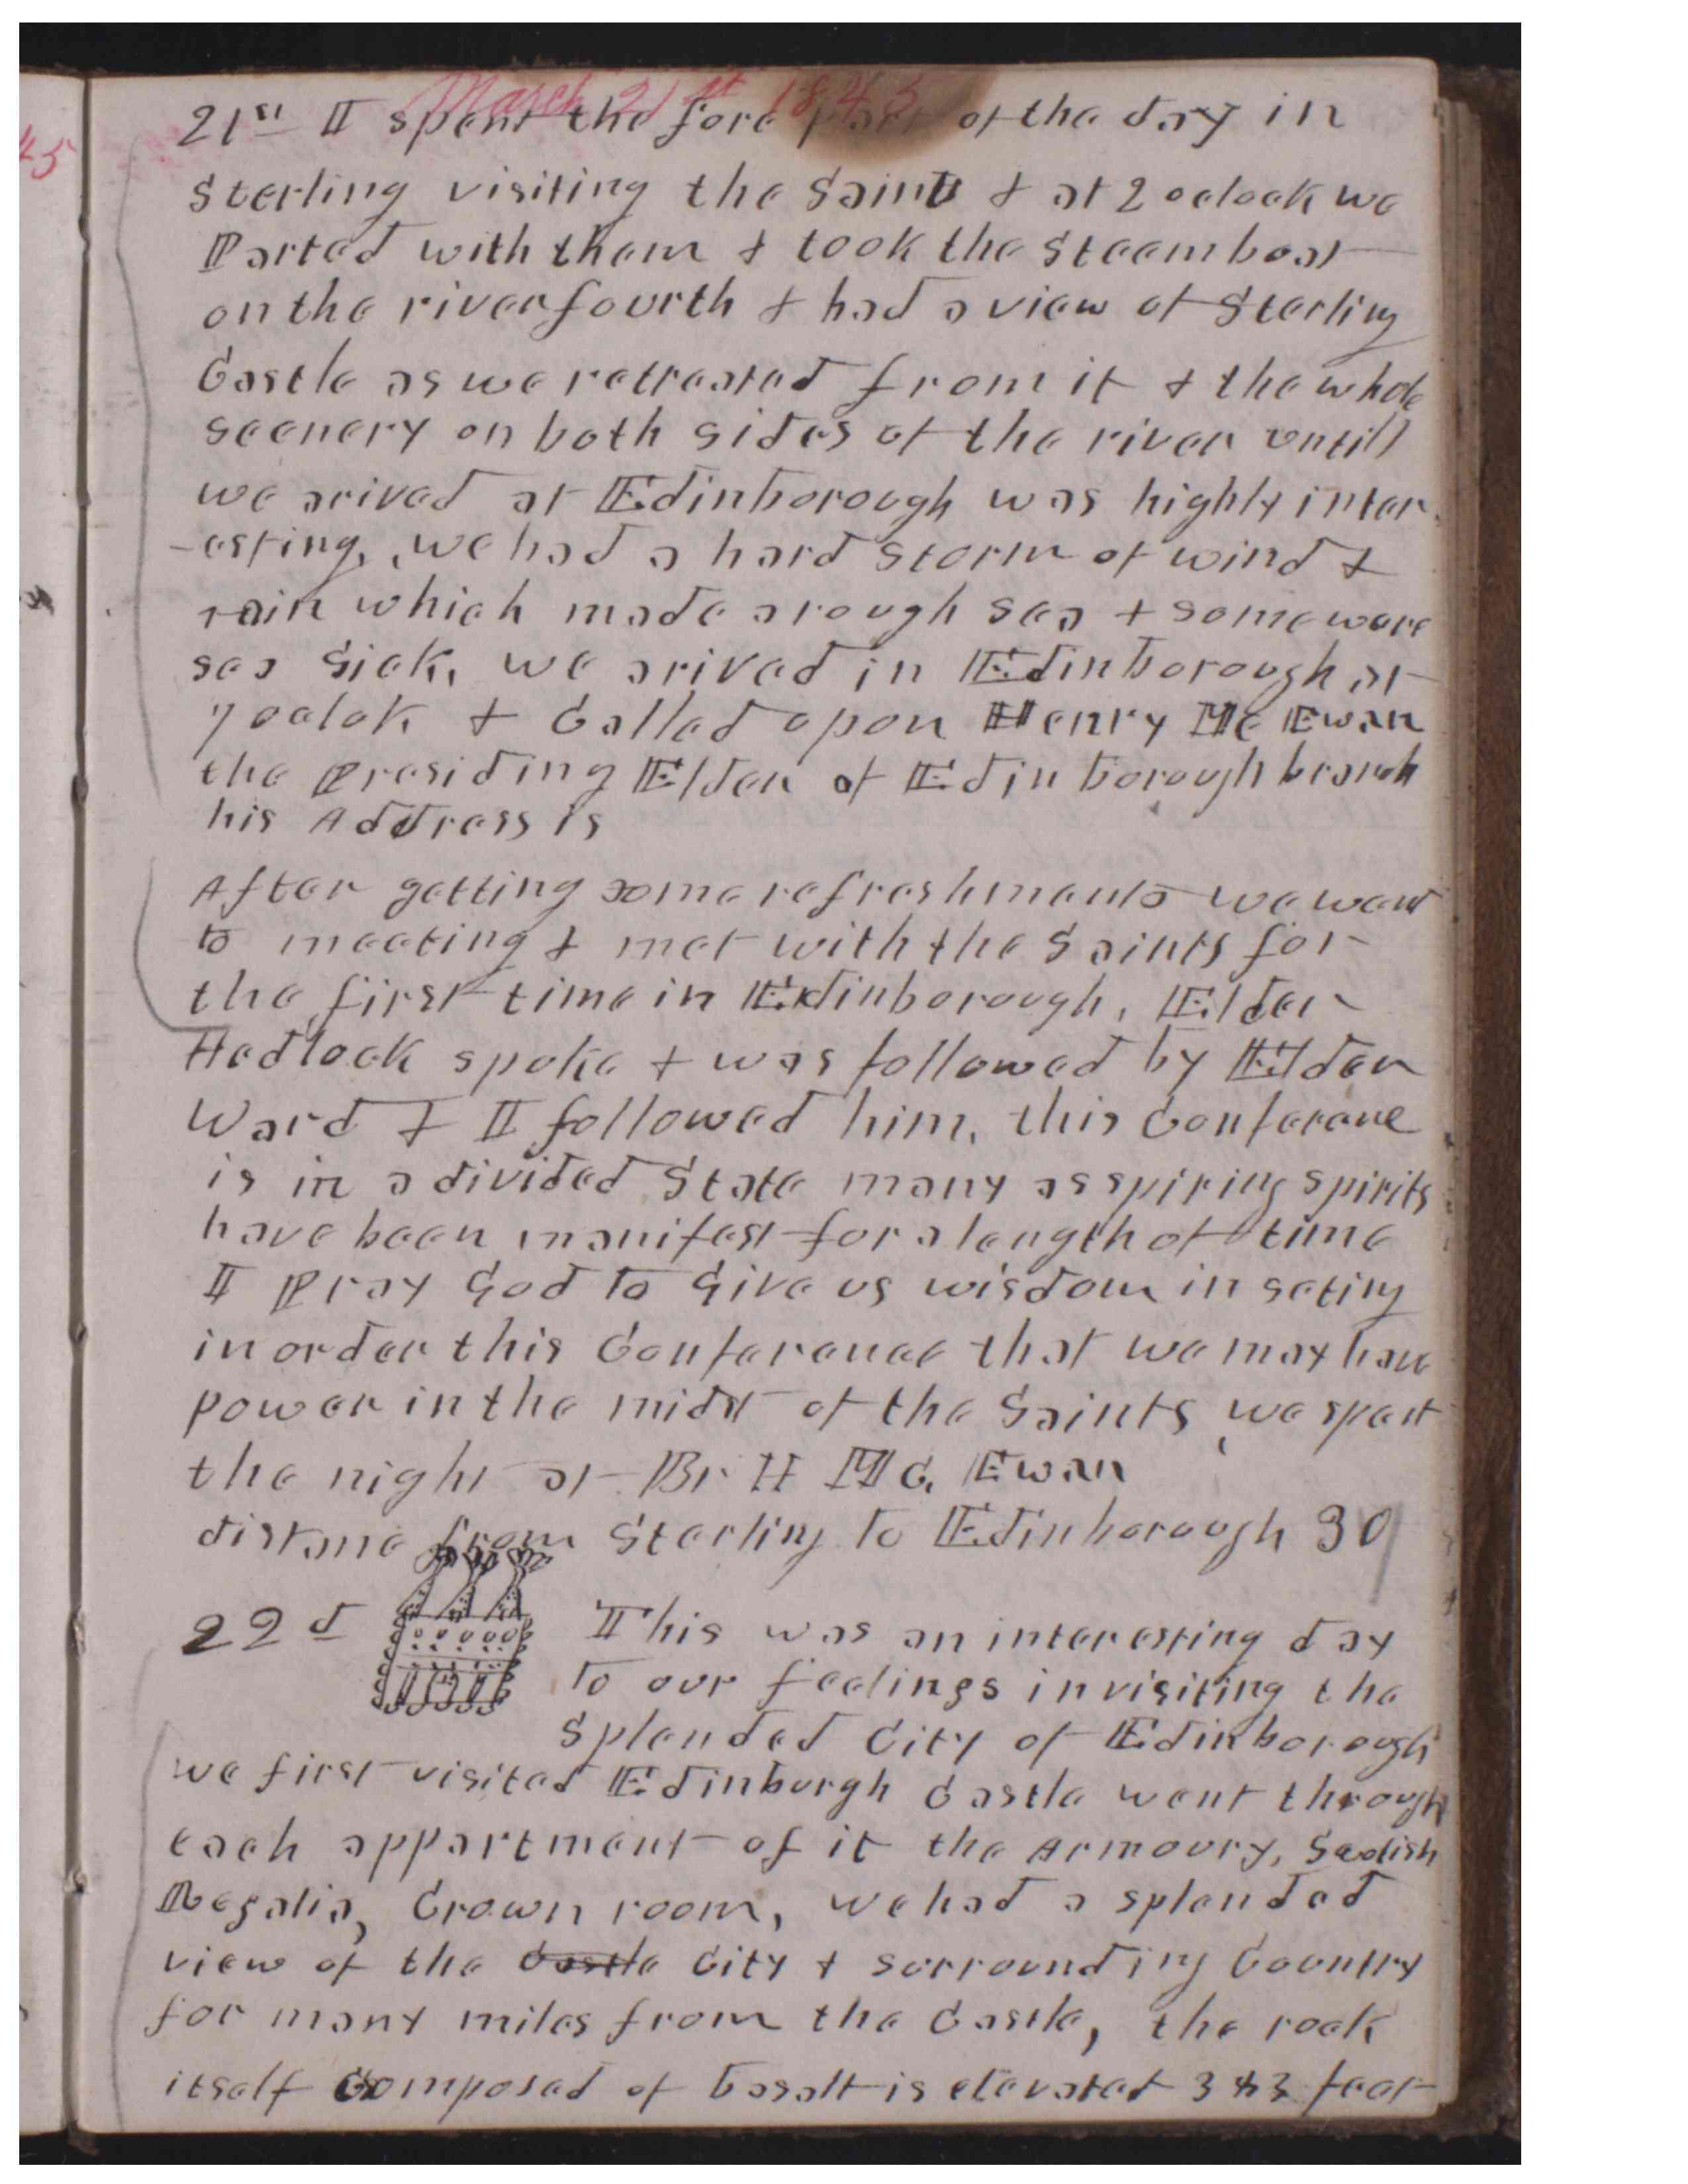 March 21st 1845
45
21st I spent the fore part of the day in
Sterling visiting the Saints & at 2 oclock we
Parted with them & took the Steem boat
on the river fourth & had a view of Sterling
Castle as we retreated from it & the whole
scenery on both sides of the river untill
we arived at Edinborough was highly inter
-esting, we had a hard storm of wind &
rain which made a rough sea & some ware
sea sick, we arived in Edinborough at
7 oclok & Called upon Henry Mc Ewan
the Presiding Elder of Edinborough branch
his Address is
After getting some refreshments we went
to meeting & met with the Saints for
the first time in Edinborough, Elder
Hedlock spoke & was followed by Elder
Ward & I followed him, this Conferance
is in a divided State many asspiring spirits
have been manifest for a length of time
I Pray God to Give us wisdom in seting
in order this Conferance that we may have
power in the midst of the Saints, we spent
the night at Br H Mc, Ewan
distance from Sterling to Edinborough 30
22d This was an interesting day
to our feelings in visiting the
Splended City of Edinborough
we first visited Edinburgh Castle went through
each appartment of it the Armoury, Scotish
Regalia, Crown room, we had a splended
view of the Castle City & surrounding Country
for many miles from the Castle, the rock
itself Composed of basalt is elevated 343 feet